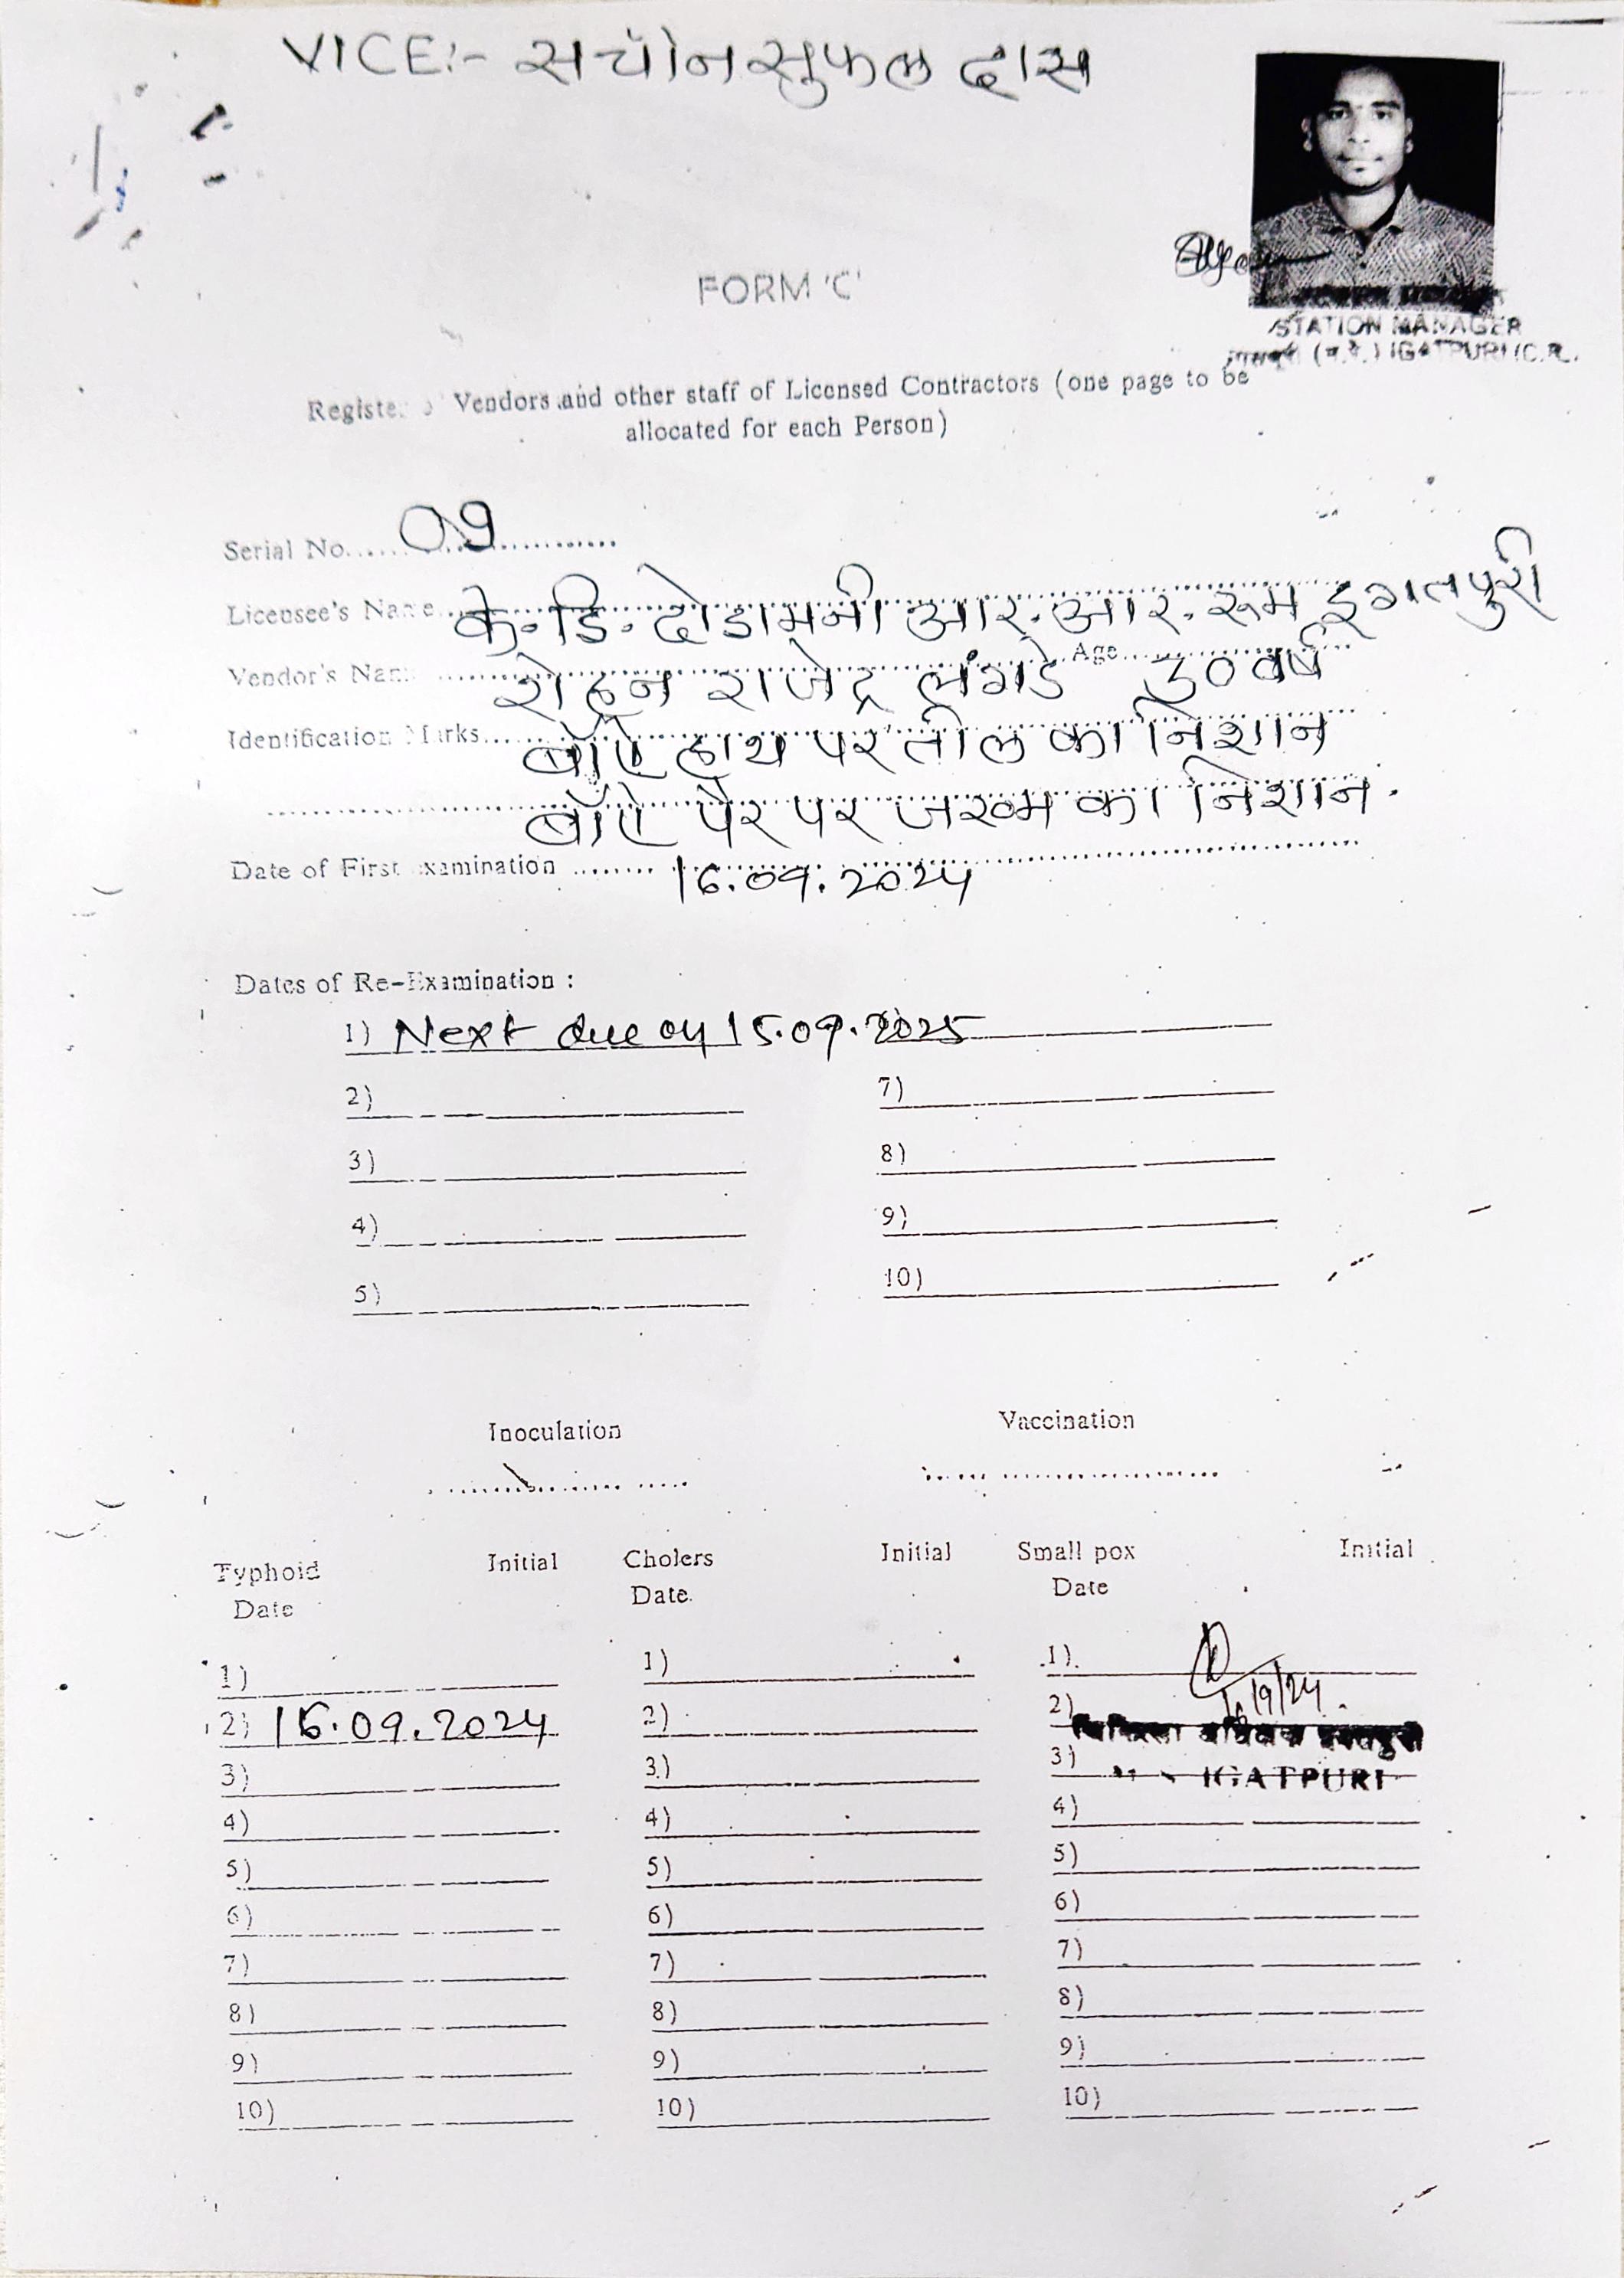 VICE:- सचीन सुफल दास
FORM 'C'
STATION MANAGER
(म.रे.) IGATPURI (C.R.)
Register Vendors and other staff of Licensed Contractors (one page to be
allocated for each Person)
Serial No. 09
Licensee's Name के. डि. दोडामनी आर. आर. रूम इगतपुरी
Vendor's Name रोहन राजेंद्र लंगडे Age 30 वर्ष
Identification Marks बाँऐ हाथ पर तील का निशान
बाँऐ पैर पर जख्म का निशान.
Date of First Examination 16.09.2024
Dates of Re-Examination :
1) Next due on 15.09.2025
2) 7)
3) 8)
4) 9)
5) 10)
Inoculation Vaccination
Typhoid Initial Cholers Initial Small pox Initial
Date Date. Date
1) 1) 1)
2) 16.09.2024 2) 2) 16/9/24
3) 3) 3) IGATPURI
4) 4) 4)
5) 5) 5)
6) 6) 6)
7) 7) 7)
8) 8) 8)
9) 9) 9)
10) 10) 10)